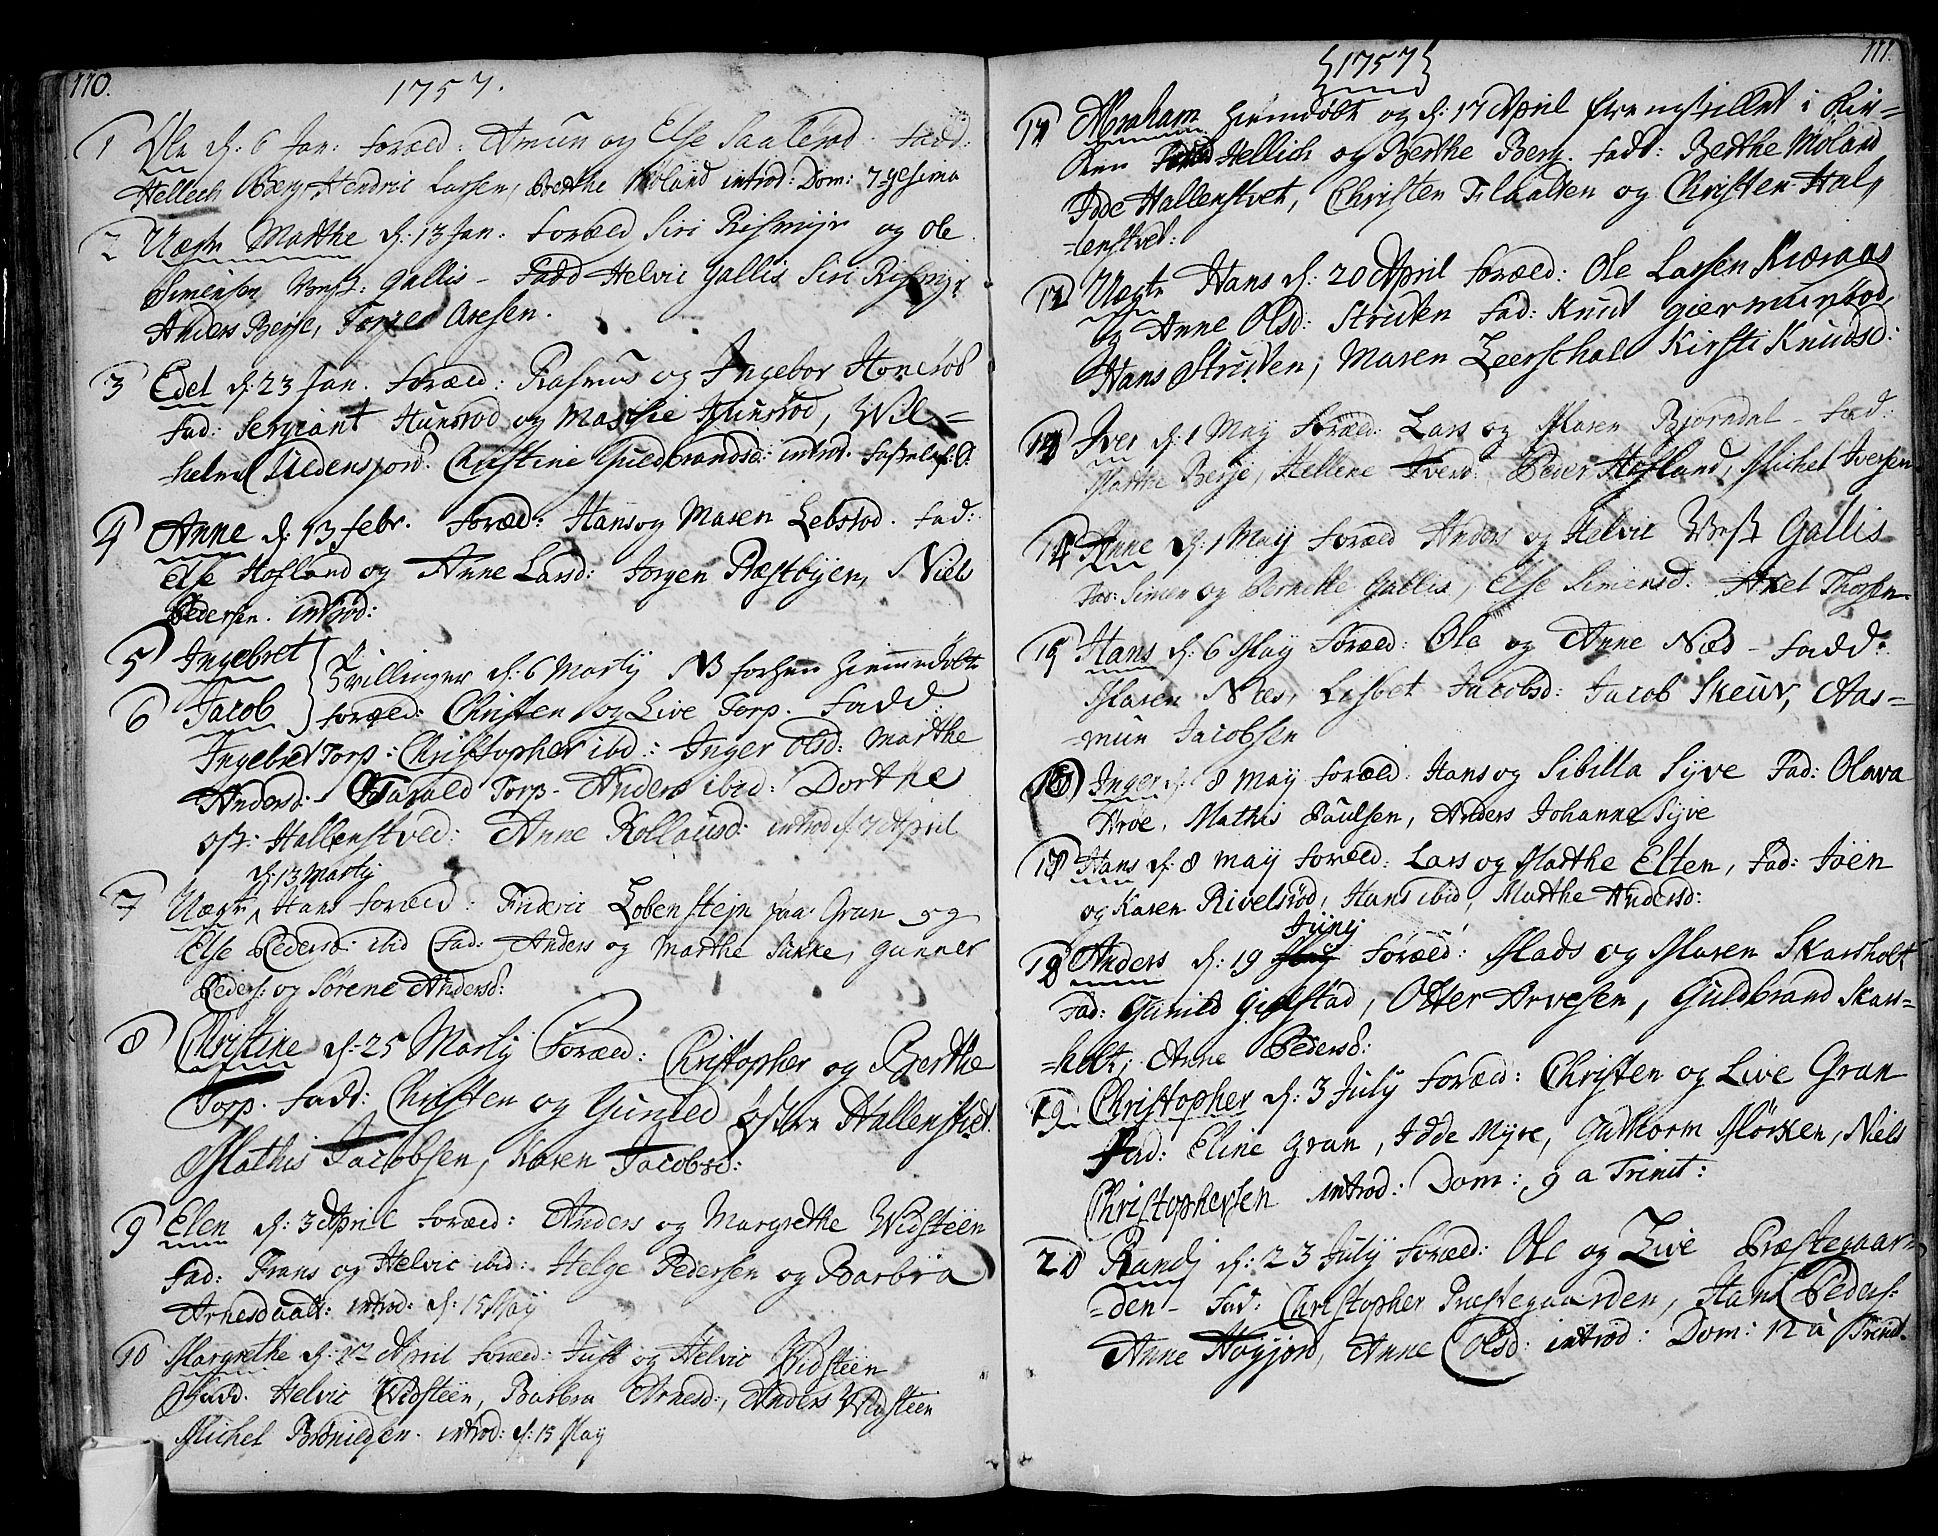 110.
1757.
1 Ole d: 6 Jan: foræld: Amun og Else Saaterød. Fadd:
Hellech Berg, Hendric Larsen, Berthe Moland introd: Dom: 7gesima
2 Uægte Marthe d: 13 Jan. Foræld Siri Rismyr og Ole
Simenson Vest: Gallis - Fadd Helvic Gallis Siri Rismyr
Anders Berje, Torger Aresen.
3 Edel d: 23 Jan. foræld: Rasmus og Ingebor Honerød
Fad: Sergiant Hunsrod og Marthe Hunsrod, Wil-
helm Uldensjord. Christine Guldbrandsd: introd.
4 Anne d: 13 febr. Foræld: Hans og Maren Lebsrod. Fad:
Else Hofland og Anne Larsd: Jørgen Præstbyen, Niels
Pedersen. introd:
5 Ingebret Tvillinger d: 6 Martij NB forhen hiemmedøbte
6 Jacob foræld: Christen og Live Torp. Fadd:
Ingebret Torp: Christopher ibd: Inger Olsd: Marthe
Andersd: Harald Torp - Anders ibid: Dorthe
Øst: Hallenstved: Anne Rollausd: introd d: 7 April
d: 13 Martij
7 Uægte Hans foræld: Frideric Lobenstejn paa Gran og
Else Pedersd: ibid Fad: Anders og Marthe Sukke, Gunner
Peders: og Sørene Andersd:
8 Christine d: 25 Martij Foræld: Christopher og Berthe
Torp. Fadd: Christen og Gunild Østre Hallenstvedt
Mathis Jacobsen, Karen Jacobsd:
9 Elen d: 3 April foræld: Anders og Margrethe Widsteen
Fad: Frans og Helvic ibid: Helge Pedersen og Barbra
Arnesdaatt: introd: d: 15 May
10 Margrethe d: 12 April foræld: Just og Helvic Widsteen
Fadd. Helvic Widsteen, Barbra Arnesd:, Anders Widsteen
Michel introd: d: 15 May
111.
1757
11 Abraham hiemdøbt og d: 17 April fremstillet i Kir-
ken Hellich og Berthe Berg. Fadd: Berthe Moland
Idde Hallenstvet, Christen Flaatten og Christen Hal-
-lenstved:
12 Uægte Hans d: 20 April foræld: Ole Larsen Kiæraas
og Anne Olsd: Struten Fad: Knud giermundrød,
Hans Struten, Maren Leerschal Kirsti Knudsd:
13 Iver d: 1 May foræld: Lars og Maren Bjorndal - Fad:
Marthe Berje, Hellene Peder Hofland, Michel Iversen
14 Anne d: 1 May foræld Anders og Helvic Vest Gallis
Fad: Simen og Pernille Gallis, Else Simensd. Axel Thorsen
15 Hans d: 6 May foræld: Ole og Anne Næs - Fadd:
Maren Næs, Lisbet Jacobsd: Jacob Skeuv, Aas-
-mun Jacobsen
16 Inger d: 8 May foræld: Hans og Sibilla Syve Fad: Olava
Kroe, Mathis Paulsen, Anders Johanne Syve
17 Hans d: 8 May foræld: Lars og Marthe Elten, Fad: Joen
og Karen Rivelsrød, Hans ibid, Marthe Andersd:
Junij
18 Anders d: 19 May Foræld: Mads og Maren Skarsholt
Fad: Gunild Gipstad, Otter Arvesen, Guldbrand Skars-
=holt, Anne Pedersd:
19 Christopher d: 3 July foræld: Christen og Live Gran
Fad: Eline Gran, Idde Myre, Guthorm Mørken, Niels
Christophersen introd: Dom: 9 a Trinit:
20 Randj d: 23 July foræld: Ole og Live Præstegaar-
=den - Fad: Christopher Præstegaarden, Hans Peders:
Anne Høyjord, Anne Olsd: introd: Dom: 12 a Trinit.